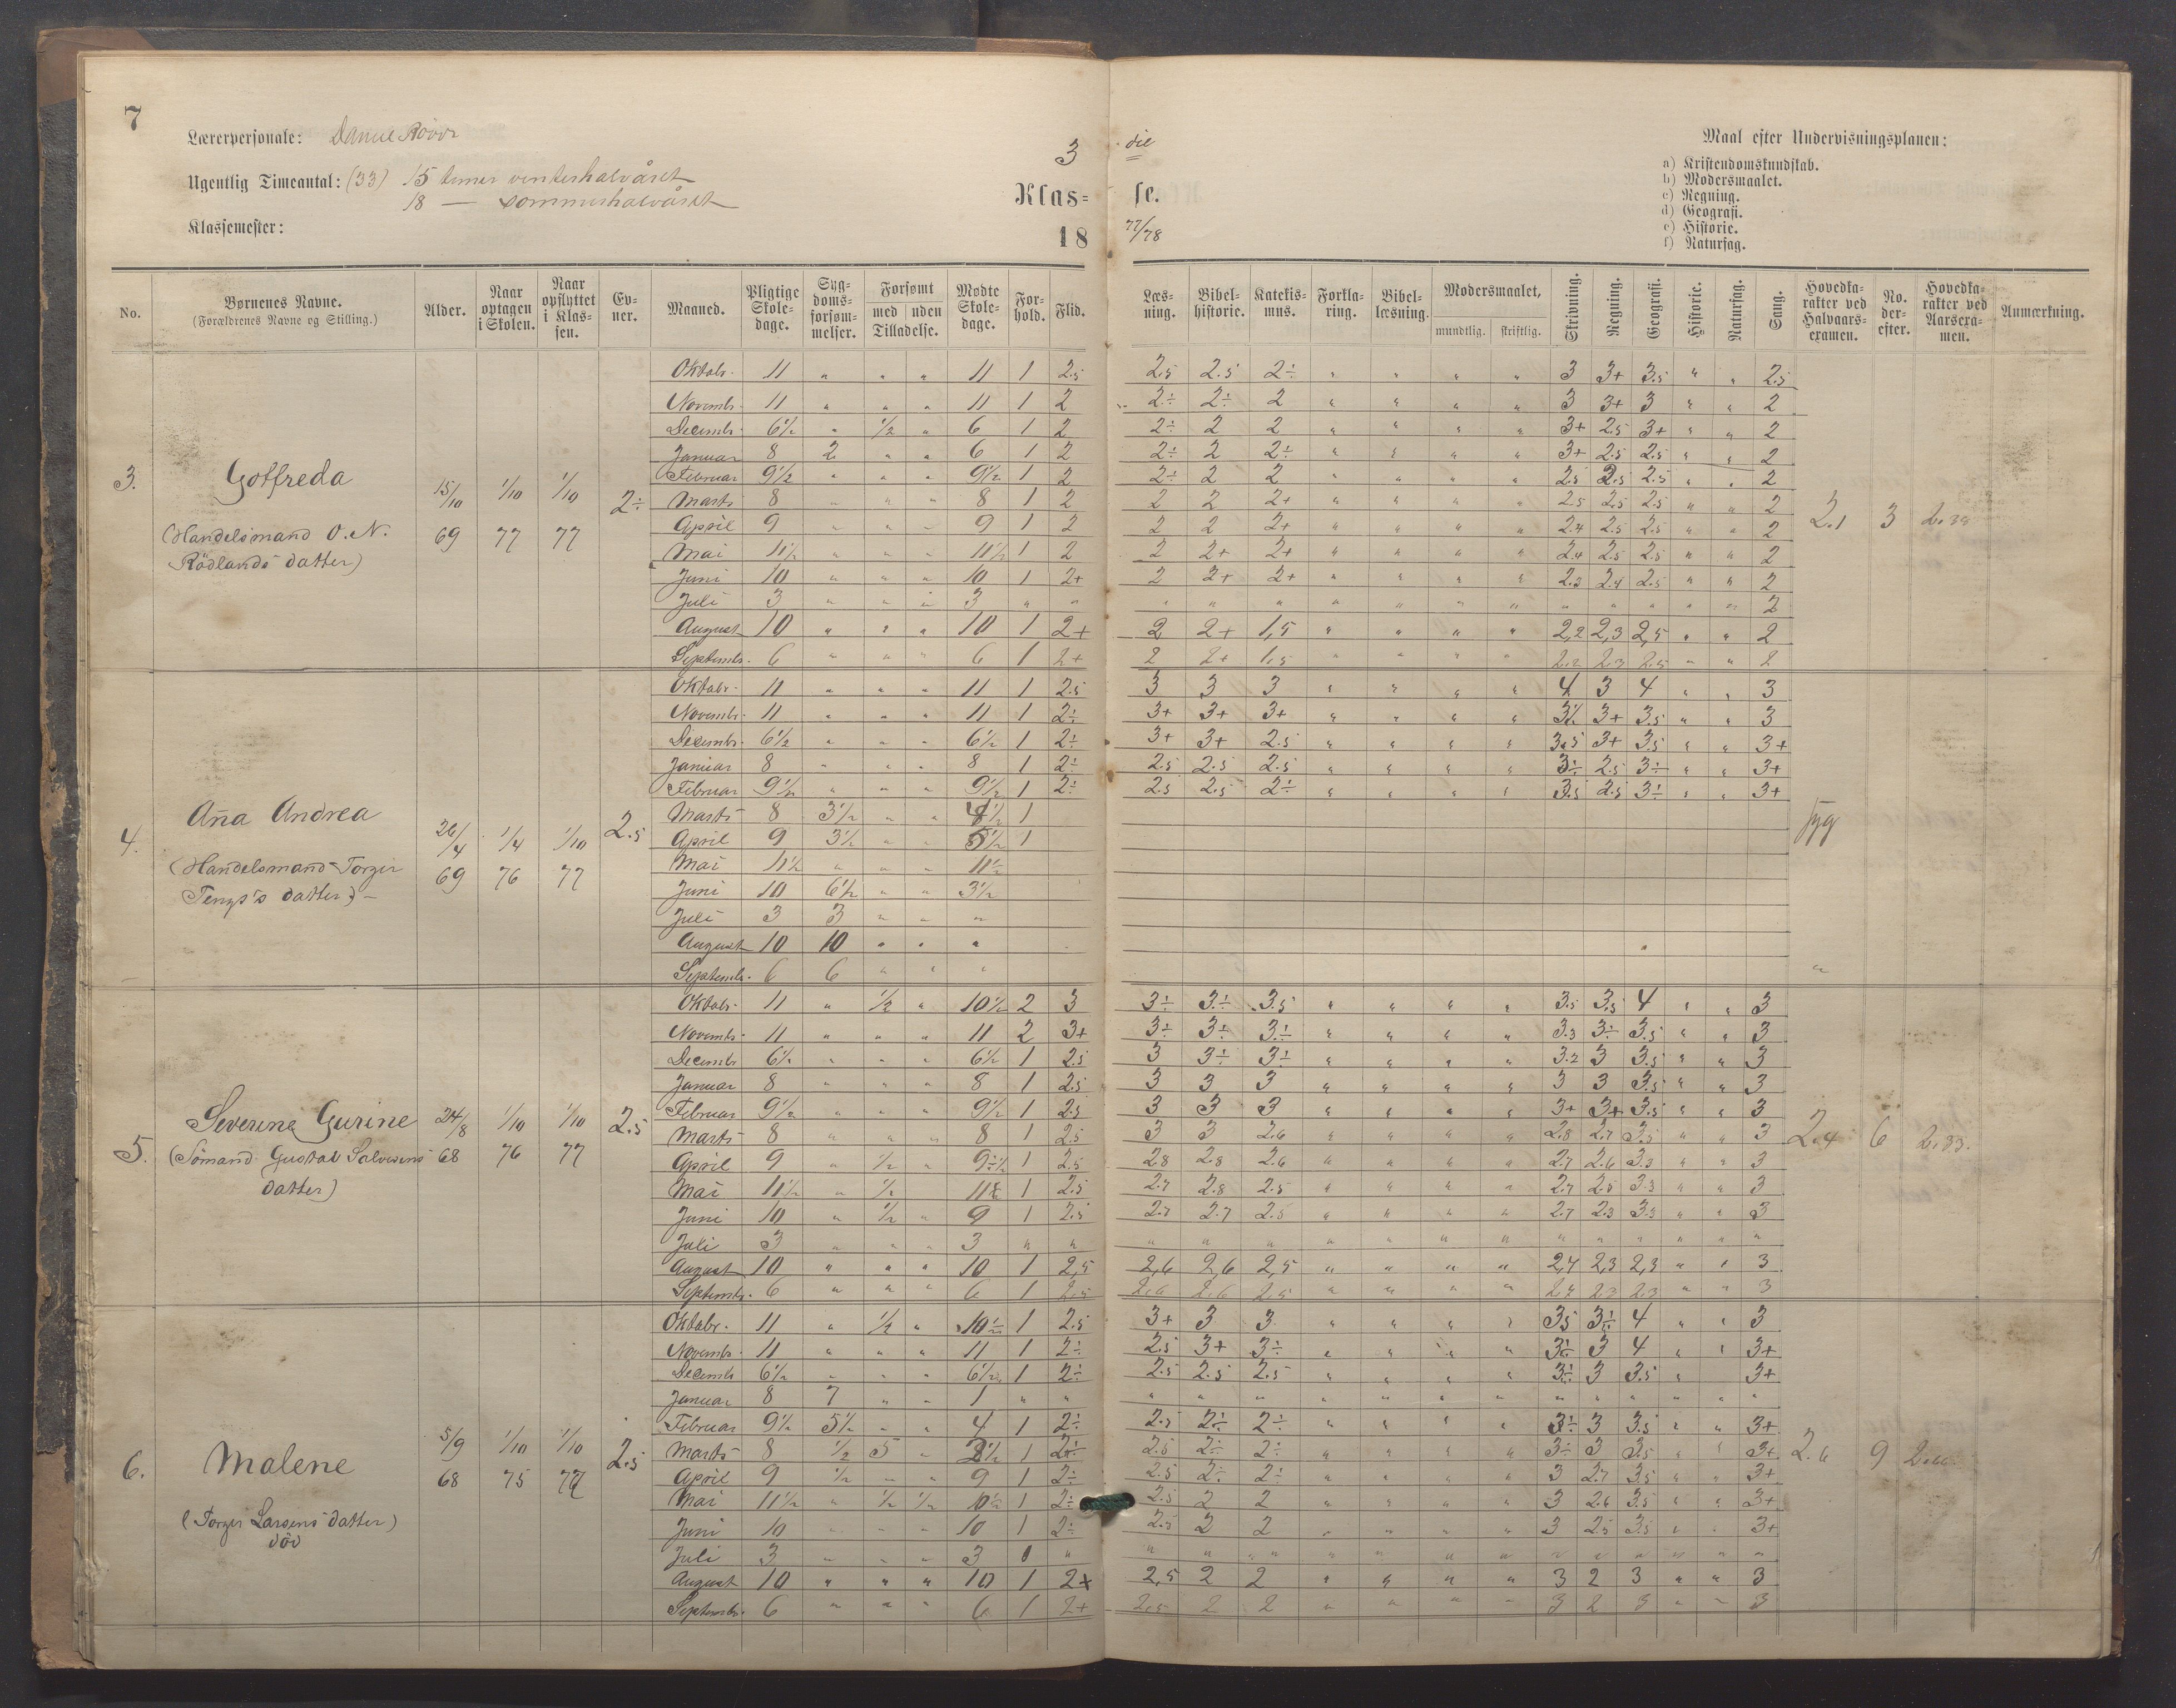 7
Lærerpersonale: Daniel
Ugentlig Timeantal: (33) 15 timer vinterhalvåret
18 — sommerhalvåret
Klassemester:
3 die
Klas= se.
18 77/78
Maal efter Undervisningsplanen:
a) Kristendomskundskab.
b) Modersmaalet.
c) Regning.
d) Geografi.
e) Historie.
f) Naturfag.
No. Børnenes Navne. (Forældrenes Navne og Stilling.) Alder. Naar optagen i Skolen. Naar opflyttet i Klassen. Evner. Maaned. Pligtige Skoledage. Sygdomsforsømmelser. Forsømt med uden Tilladelse. Mødte Skoledage. Forhold. Flid. Læsning. Bibelhistorie. Katekismus. Forklaring. Bibellæsning. Modersmaalet, mundtlig. skriftlig. Skrivning. Regning. Geografi. Historie. Naturfag. Sang. Hovedkarakter ved Halvaarsexamen. No. derefter. Hovedkarakter ved Aarsexamen. Anmærkning.
3. Gotfreda
(Handelsmand O. N.
Rödlands datter)
15/10 69 1/10 77 1/10 77 2÷
Oktobr. 11 " " " 11 1 2.5 2.5 2.5 2÷ " " " " 3 3+ 3.5 " " 2.5
Novembr. 11 " " " 11 1 2 2÷ 2÷ 2 " " " " 3 3+ 3 " " 2
Decembr. 6½ " ½ " 6 1 2 2÷ 2 2 " " " " 3+ 2.5 3+ " " 2
Januar 8 2 " " 6 1 2 2÷ 2 2÷ " " " " 3+ 2.5 2.5 " " 2
Februar 9½ " " " 9½ 1 2 2÷ 2 2 " " " " 2.5 2.5 2.5 " " 2
Marts 8 " " " 8 1 2 2 2 2+ " " " " 2.5 2.5 2.5 " " 2
April 9 " " " 9 1 2 2 2 2+ " " " " 2.4 2.5 2.5 " " 2
Mai 11½ " " " 11½ 1 2 2 2+ 2+ " " " " 2.4 2.5 2.5 " " 2
Juni 10 " " " 10 1 2+ 2 2+ 2+ " " " " 2.3 2.4 2.5 " " 2
Juli 3 " " " 3 " " " " " " " " " " " " " " 2
August 10 " " " 10 1 2+ 2 2+ 1,5 " " " " 2,2 2,3 2,5 " " 2
Septembr. 6 " " " 6 1 2+ 2 2+ 1.5 " " " " 2.2 2.3 2.5 " " 2
2.1 3
4. Anna Andrea
(Handelsmand Torger
datter)
26/4 69 1/4 76 1/10 77 2.5
Oktobr. 11 " " " 11 1 2.5 3 3 3 " " " " 4 3 4 " " 3
Novembr. 11 " " " 11 1 2÷ 3+ 3+ 3+ " " " " 3½ 3+ 3.5 " " 3
Decembr. 6½ " " " 6½ 1 2÷ 3+ 3+ 2.5 " " " " 3.5 3+ 3.5 " " 3+
Januar 8 " " " 8 1 2÷ 2.5 2.5 2.5 " " " " 3÷ 2.5 3÷ " " 3+
Februar 9½ " " " 9½ 1 2÷ 2.5 2.5 2÷ " " " " 3.5 2.5 3÷ " " 3+
Marts 8 3½ " " 4½ 1
April 9 3½ " " 5½ 1
Mai 11½ " " " 11½
Juni 10 6½ " " 3½
Juli 3 3 " " "
August 10 10 " " "
Septembr. 6 6 " " "
syg
5. Severine Gurine
(Sömand Gustav Salvesens
datter)
24/8 68 1/10 76 1/10 77 2.5
Oktobr. 11 " ½ " 10½ 2 3 3÷ 3÷ 3.5 " " " " 3.5 3.5 4 " " 3
Novembr. 11 " " " 11 2 3+ 3÷ 3÷ 3÷ " " " " 3.3 3÷ 3.5 " " 3
Decembr. 6½ " " " 6½ 1 2.5 3 3÷ 3÷ " " " " 3.2 3 3.5 " " 3
Januar 8 " " " 8 1 2.5 3 3 3 " " " " 3 3 3.5 " " 3
Februar 9½ " " " 9½ 1 2.5 3 3 3 " " " " 3+ 3+ 3.5 " " 3
Marts 8 " " " 8 1 2.5 3 3 2.6 " " " " 2.8 2.7 3.5 " " 3
April 9 " ½ " 1 2.5 2.8 2.8 2.6 " " " " 2.7 2.6 3.3 " " 3
Mai 11½ " ½ " 11 1 2.5 2.7 2.8 2.5 " " " " 2.7 2.5 3.3 " " 3
Juni 10 " ½ " 9 1 2.5 2.7 2.7 2.5 " " " " 2.7 2.3 3.3 " " 3
Juli 3 " " " 3 " " " " " " " " " " " " " " "
August 10 " " " 10 1 2,5 2,6 2,6 2,5 " " " " 2,4 2,3 2,3 " " 3
Septembr. 6 " " " 6 1 2.5 2.6 2.6 2.5 " " " " 2.4 2.3 2.3 " " 3
2.4 6 2.33.
6. Malene
(Torger Larsens datter)
död
5/9 68 1/10 75 1/10 77 2.5
Oktobr. 11 " ½ " 10½ 1 2.5 3+ 3 3 " " " " 3.5 3÷ 4 " " 3
Novembr. 11 " " " 11 1 2÷ 2.5 3+ 3÷ " " " " 3÷ 3 4 " " 3+
Decembr 6½ " " " 6½ 1 2÷ 2.5 2.5 2.5 " " " " 3÷ 3 3.5 " 3+
Januar 8 7 " " 1 " " " " " " " " " " " " " " "
Februar 9½ 5½ " " 4 1 2÷ 2.5 2÷ 2÷ " " " " 3÷ 3 3.5 " " 3+
Marts 8 ½ 5 " 2½ 1 2÷ 2.5 2÷ 2÷ " " " " 3÷ 3 3.5 " " 3+
April 9 ½ " " 9 1 2÷ 2.5 2÷ 2÷ " " " " 3 2.7 3.5 " " 3+
Mai 11½ " ½ ½ 10½ 1 2÷ 2.5 2 2 " " " " 3 2.6 3.5 " " 3+
Juni 10 " " " 10 1 2÷ 2.5 2 2 " " " " 3 2.5 3.5 " " 3+
Juli 3 " " " 3 " " " " " " " " " " " " " "
August 10 " " " 10 1 2+ 2,5 2 2 " " " " 3 2 3 " " 3
Septembr. 6 " " " 6 1 2+ 2.5 2 2 " " " " 3 2 3 " " 3
2.6 9